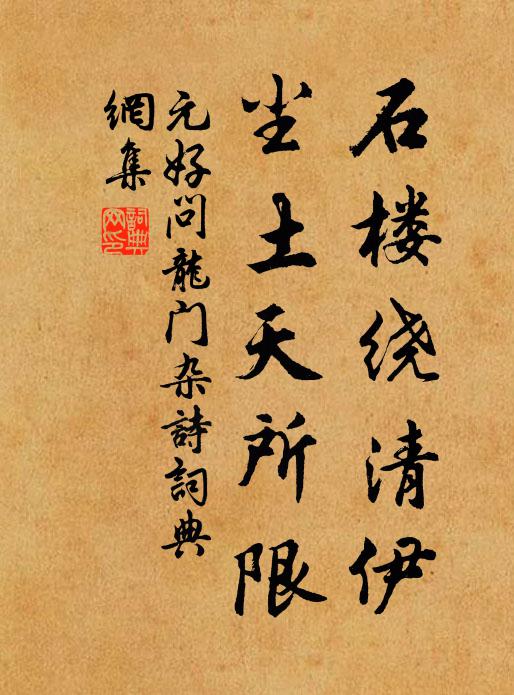 石楼绕清伊
尘土天所限
元好问龍门杂詩詞典
網集
詞典網印